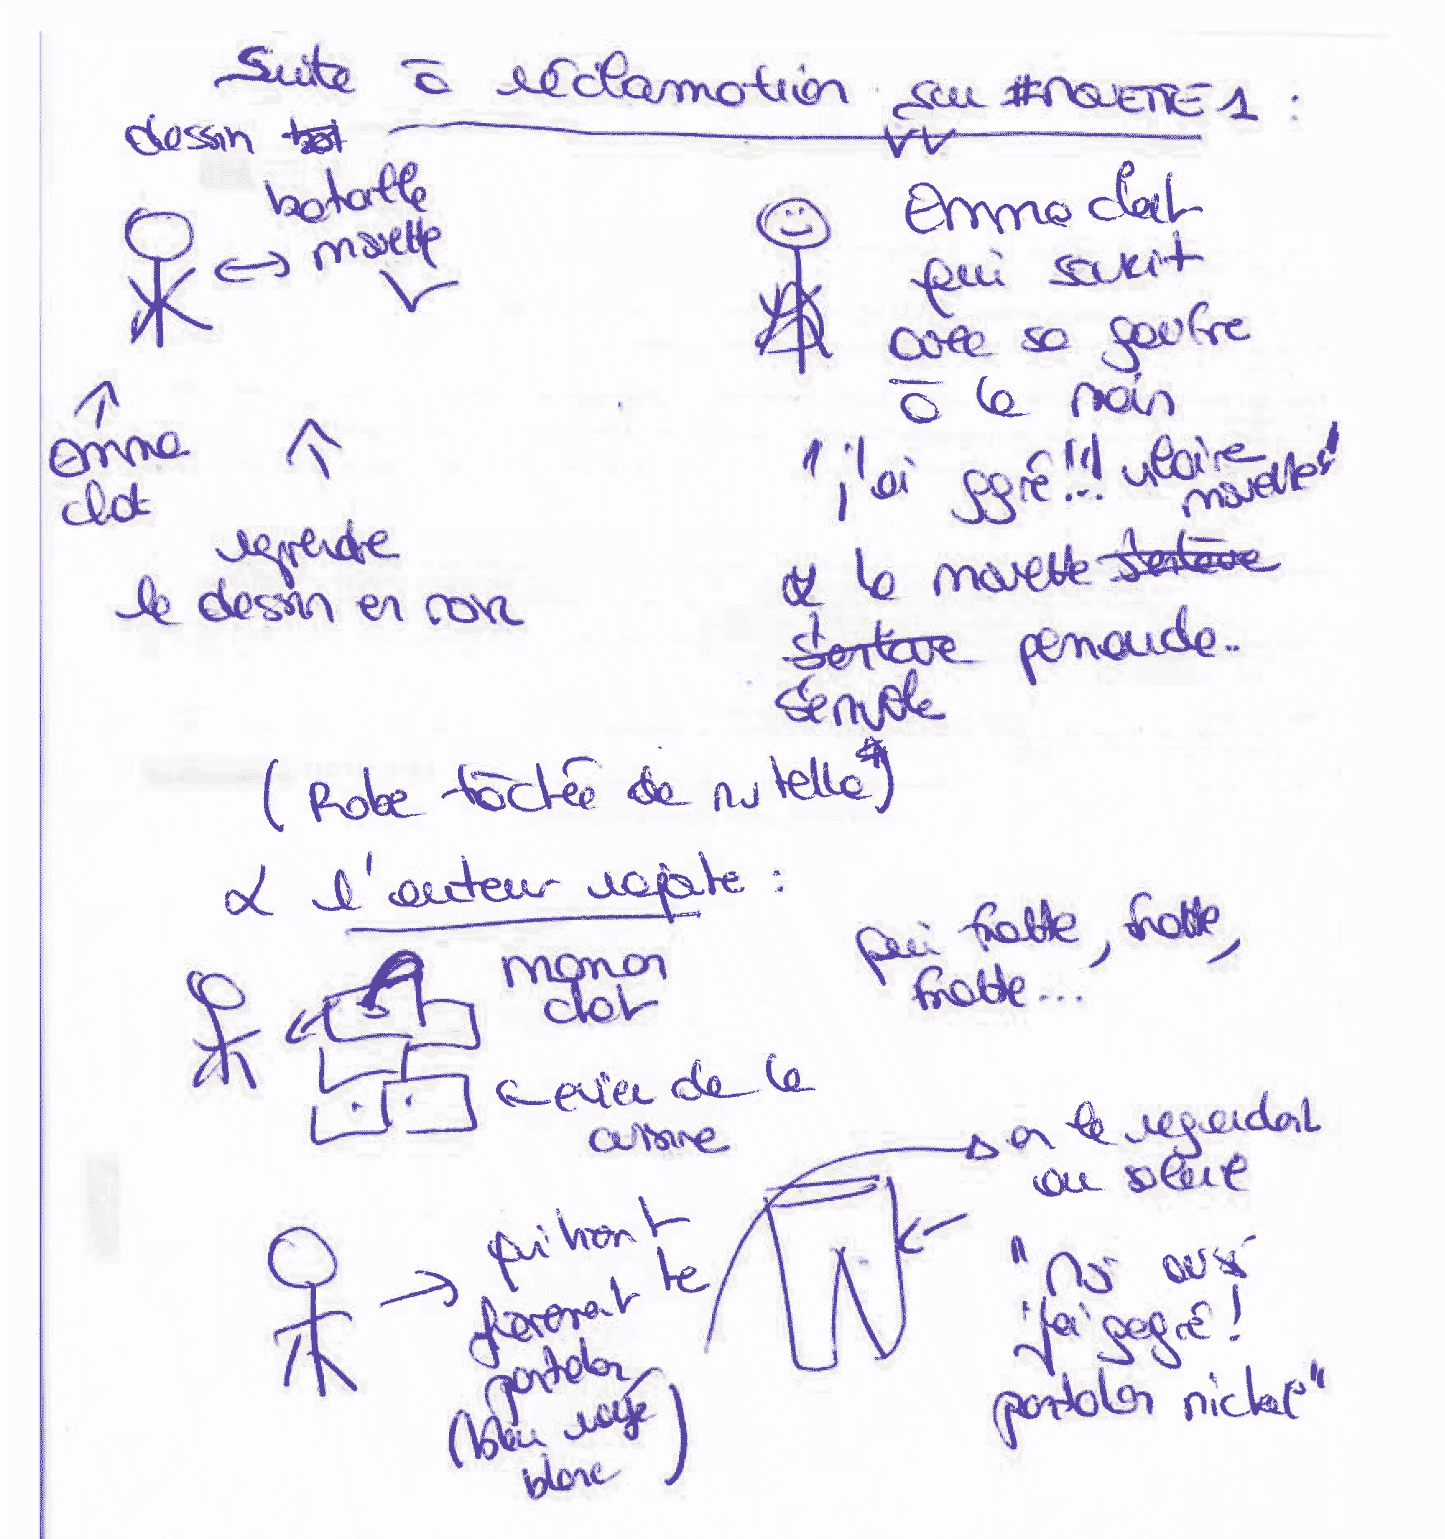 Suite à réclamation sur #MOUETTE 1 :
dessin
bataille
mouette
Emma clot
qui sourit
avec sa gaufre
à la main
"j'ai gagné!!!...
mouette"
Emma
clot
reprendre
le dessin en noir
& la mouette
penaude..
s'envole
(Robe tâchée de nutella*)
& l'auteur rajoute :
maman
clot
qui frotte, frotte,
frotte...
← évier de la
cuisine
on le regardant
au soleil
qui tient
fièrement le
pantalon
(bleu rayé
blanc)
"moi aussi
j'ai gagné!
pantalon nickel"